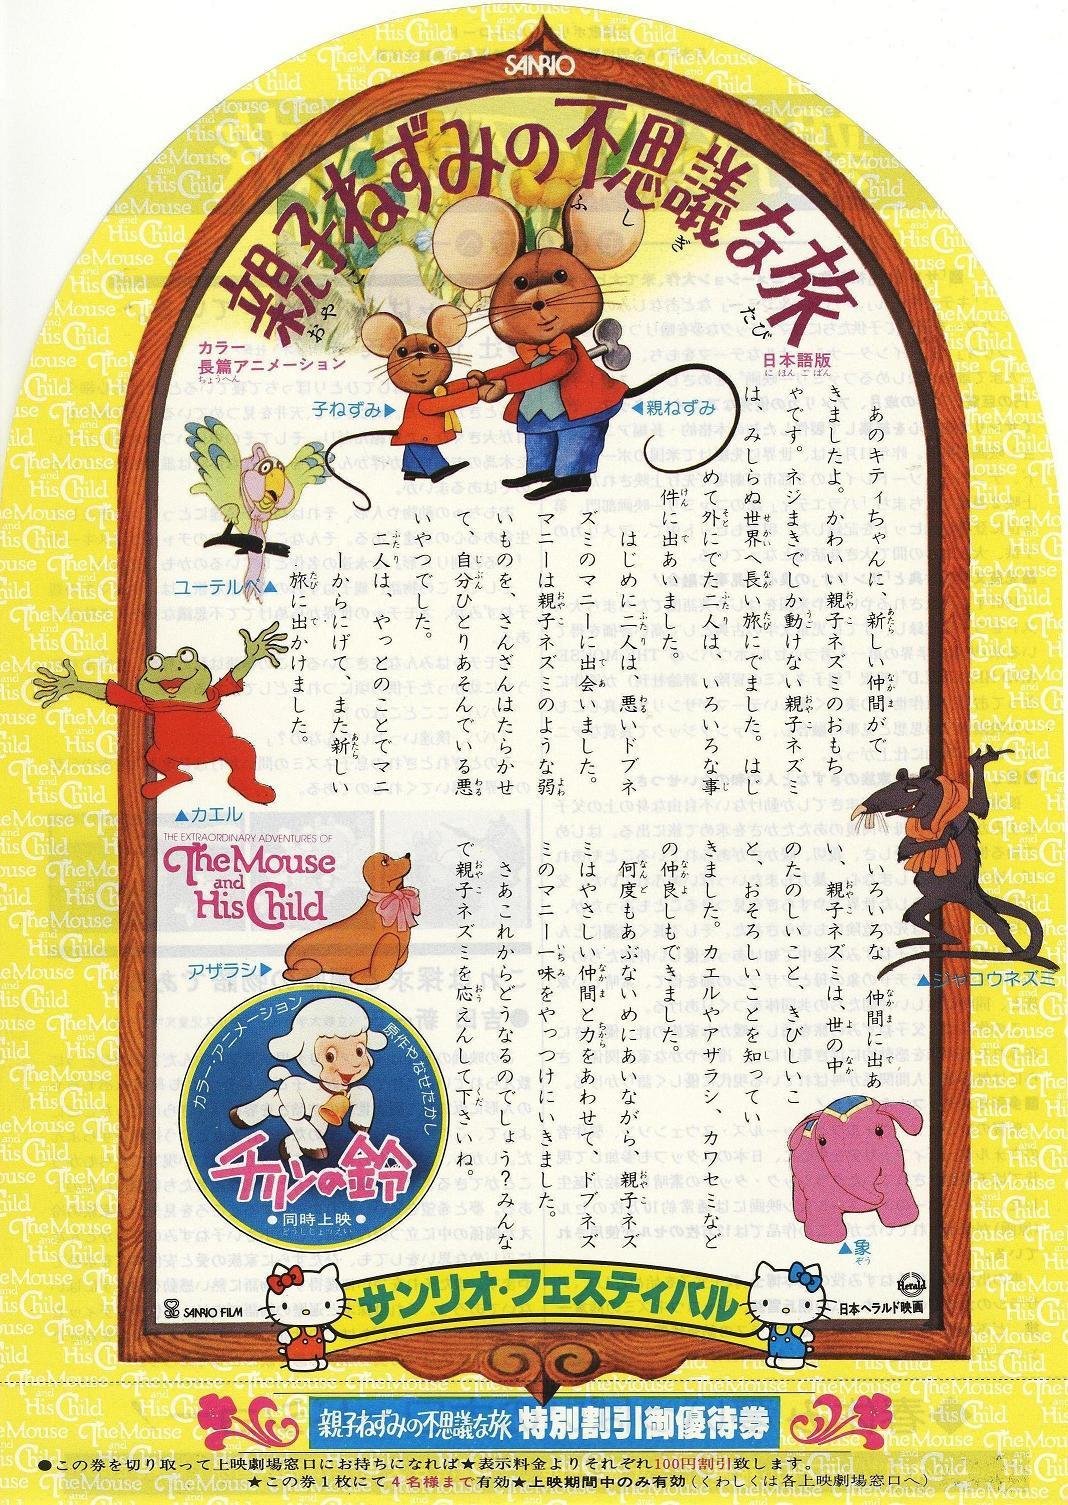 SANRIO
親子ねずみの不思議な旅
おやこ
ふしぎ
たび
カラー
長篇アニメーション
ちょうへん
日本語版
にほんごばん
子ねずみ▶
◀親ねずみ
あのキティちゃんに、新しい仲間がで
きましたよ。かわいい親子ネズミのおもち
ゃです。ネジまきでしか動けない親子ネズミ
は、みしらぬ世界へ長い旅にでました。はじ
めて外にでた二人は、いろいろな事
件に出あいました。
はじめに二人は、悪いドブネ
ズミのマニーに出会いました。
マニーは親子ネズミのような弱
いものを、さんざんはたらかせ
て、自分ひとりあそんでいる悪
いやつでした。
二人は、やっとのことでマニ
ーからにげて、また新しい
旅に出かけました。
ユーテルペ▲
▲カエル
THE EXTRAORDINARY ADVENTURES OF
The Mouse
and
His Child
アザラシ▶
▲ジャコウネズミ
いろいろな仲間に出あ
い、親子ネズミは、世の中
のたのしいこと、きびしいこ
と、おそろしいことを知ってい
きました。カエルやアザラシ、カワセミなど
の仲良しもできました。
何度もあぶないめにあいながら、親子ネズ
ミはやさしい仲間と力をあわせて、ドブネズ
ミのマニー一味をやっつけにいきました。
さあこれからどうなるのでしょう？みんな
で親子ネズミを応えんして下さいね。
カラー・アニメーション
原作やなせたかし
チリンの鈴
●同時上映●
どうじじょうえい
▲象
ぞう
SANRIO FILM
サンリオ・フェスティバル
Herald
日本ヘラルド映画
親子ねずみの不思議な旅 特別割引御優待券
●この券を切り取って上映劇場窓口にお持ちになれば★表示料金よりそれぞれ100円割引致します。
★この券1枚にて4名様まで有効★上映期間中のみ有効(くわしくは各上映劇場窓口へ)